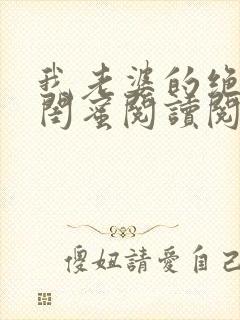 我老婆的绝
閨蜜閱讀閱
傻妞請愛自己